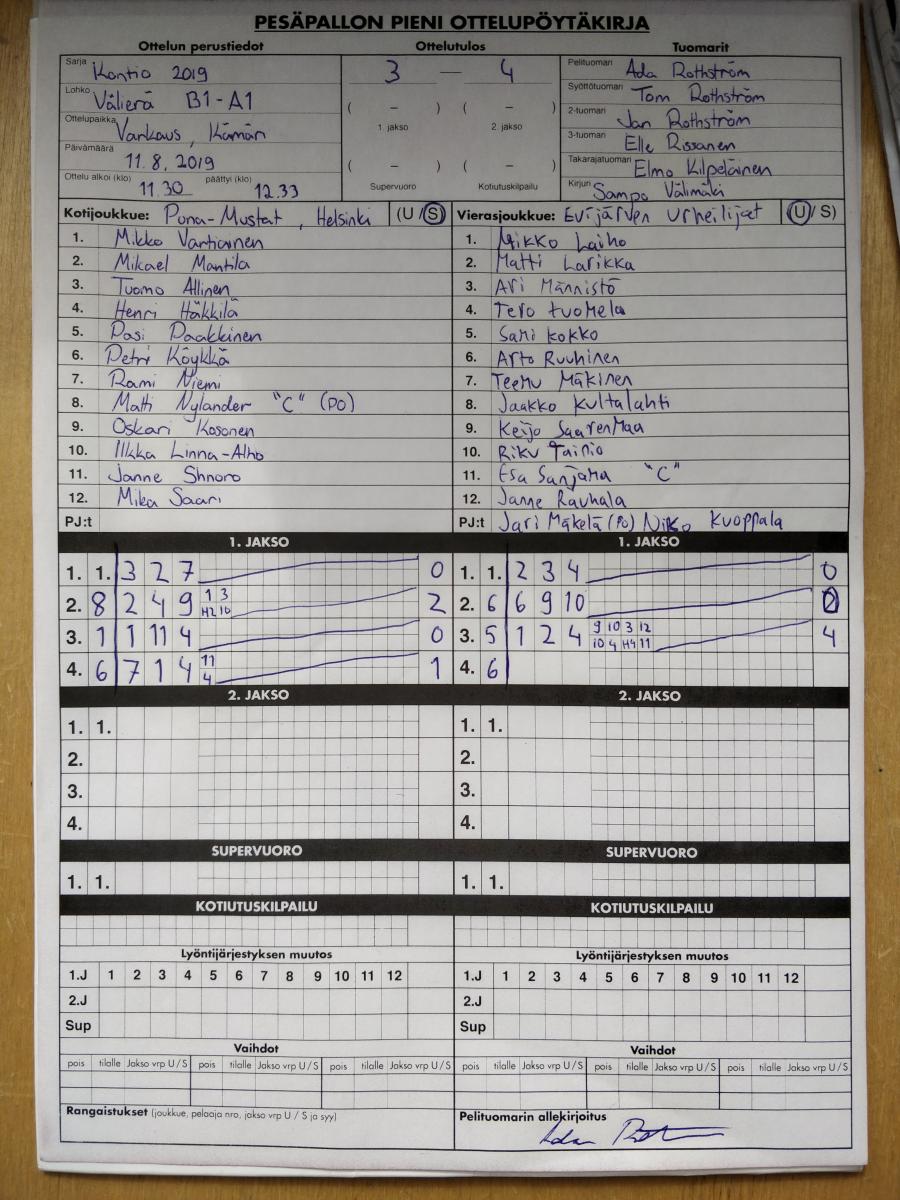 PESÄPALLON PIENI OTTELUPÖYTÄKIRJA
Ottelun perustiedot Ottelutulos Tuomarit
Sarja Kontio 2019
Lohko Välierä B1-A1
Ottelupaikka Varkaus, Kämäri
Päivämäärä 11.8.2019
Ottelu alkoi (klo) 11.30 päättyi (klo) 12.33
3 — 4
( – ) ( – )
1. jakso 2. jakso
( – ) ( – )
Supervuoro Kotiutuskilpailu
Pelituomari Ada Rothström
Syöttötuomari Tom Rothström
2-tuomari Jan Rothström
3-tuomari Elle Rissanen
Takarajatuomari Elmo Kilpeläinen
Kirjuri Sampo Välimäki
Kotijoukkue: Puna-Mustat, Helsinki (U/S)
1. Mikko Vartiainen
2. Mikael Mantila
3. Tuomo Allinen
4. Henri Häkkilä
5. Pasi Paakkinen
6. Petri Köykkä
7. Rami Niemi
8. Matti Nylander "C" (PO)
9. Oskari Kosonen
10. Ilkka Linna-Alho
11. Janne Shnoro
12. Mika Saari
PJ:t
Vierasjoukkue: Evijärven Urheilijat (U/S)
1. Mikko Laiho
2. Matti Larikka
3. Ari Männistö
4. Tero Tuomela
5. Sami Kokko
6. Arto Ruuhinen
7. Teemu Mäkinen
8. Jaakko Kultalahti
9. Keijo Saarenmaa
10. Riku Tainio
11. Esa Sanjama "C"
12. Janne Rauhala
PJ:t Jari Mäkelä (PO) Niko Kuoppala
1. JAKSO
1. 1. 3 2 7 0
2. 8 2 4 9 1 3 H2 10 2
3. 1 1 11 4 0
4. 6 7 1 4 11 4 1
1. JAKSO
1. 1. 2 3 4 0
2. 6 6 9 10 0
3. 5 1 2 4 9 10 3 12 10 4 H4 11 4
4. 6
2. JAKSO 2. JAKSO
1. 1. 1. 1.
2. 2.
3. 3.
4. 4.
SUPERVUORO SUPERVUORO
1. 1. 1. 1.
KOTIUTUSKILPAILU KOTIUTUSKILPAILU
Lyöntijärjestyksen muutos Lyöntijärjestyksen muutos
1.J 1 2 3 4 5 6 7 8 9 10 11 12 1.J 1 2 3 4 5 6 7 8 9 10 11 12
2.J 2.J
Sup Sup
Vaihdot Vaihdot
pois tilalle Jakso vrp U/S pois tilalle Jakso vrp U/S pois tilalle Jakso vrp U/S pois tilalle Jakso vrp U/S pois tilalle Jakso vrp U/S pois tilalle Jakso vrp U/S
Rangaistukset (joukkue, pelaaja nro, jakso vrp U / S ja syy) Pelituomarin allekirjoitus